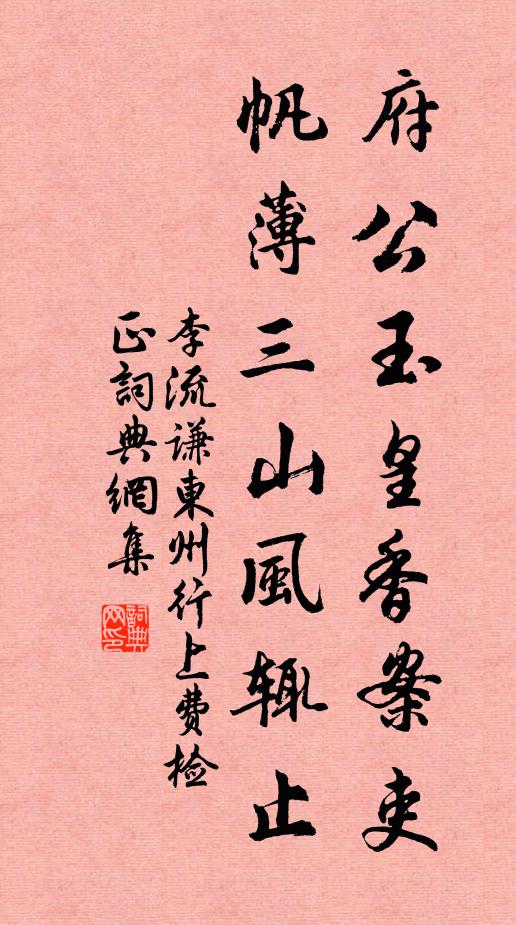 府公玉皇香案吏
帆薄三山風辄止
李流谦東州行上费检
正詞典網集
詞典网印